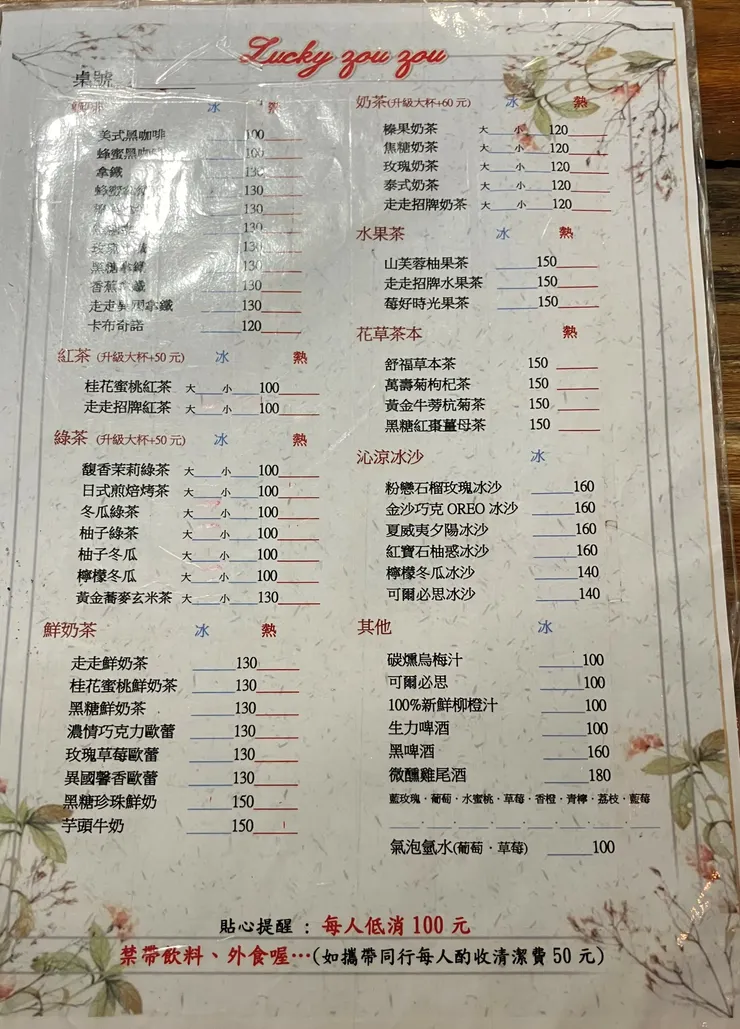 Lucky zou zou
桌號
咖啡 冰 熱
美式黑咖啡 100
蜂蜜黑咖啡 100
拿鐵 130
蜂蜜拿鐵 130
130
130
玫瑰拿鐵 130
黑糖拿鐵 130
香蕉拿鐵 130
走走異國拿鐵 130
卡布奇諾 120
紅茶 (升級大杯+50 元) 冰 熱
桂花蜜桃紅茶 大 小 100
走走招牌紅茶 大 小 100
綠茶 (升級大杯+50 元) 冰 熱
馥香茉莉綠茶 大 小 100
日式煎焙烤茶 大 小 100
冬瓜綠茶 大 小 100
柚子綠茶 大 小 100
柚子冬瓜 大 小 100
檸檬冬瓜 大 小 100
黃金蕎麥玄米茶 大 小 130
鮮奶茶 冰 熱
走走鮮奶茶 130
桂花蜜桃鮮奶茶 130
黑糖鮮奶茶 130
濃情巧克力歐蕾 130
玫瑰草莓歐蕾 130
異國馨香歐蕾 130
黑糖珍珠鮮奶 150
芋頭牛奶 150
奶茶(升級大杯+60 元) 冰 熱
榛果奶茶 大 小 120
焦糖奶茶 大 小 120
玫瑰奶茶 大 小 120
泰式奶茶 大 小 120
走走招牌奶茶 大 小 120
水果茶 冰 熱
山芙蓉柚果茶 150
走走招牌水果茶 150
莓好時光果茶 150
花草茶本 熱
舒福草本茶 150
萬壽菊枸杞茶 150
黃金牛蒡杭菊茶 150
黑糖紅棗薑母茶 150
沁涼冰沙 冰
粉戀石榴玫瑰冰沙 160
金沙巧克 OREO 冰沙 160
夏威夷夕陽冰沙 160
紅寶石柚惑冰沙 160
檸檬冬瓜冰沙 140
可爾必思冰沙 140
其他 冰
碳燻烏梅汁 100
可爾必思 100
100%新鮮柳橙汁 100
生力啤酒 100
黑啤酒 160
微醺雞尾酒 180
藍玫瑰．葡萄．水蜜桃．草莓．香橙．青檸．荔枝．藍莓
氣泡氫水(葡萄．草莓) 100
貼心提醒 : 每人低消 100 元
禁帶飲料、外食喔…(如攜帶同行每人酌收清潔費 50 元)